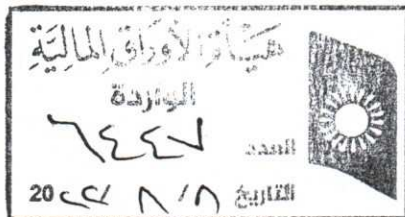 هيأة الأوراق المالية
الواردة
العدد ٦٤٤٧
التاريخ ٨/٨ 20٢٢